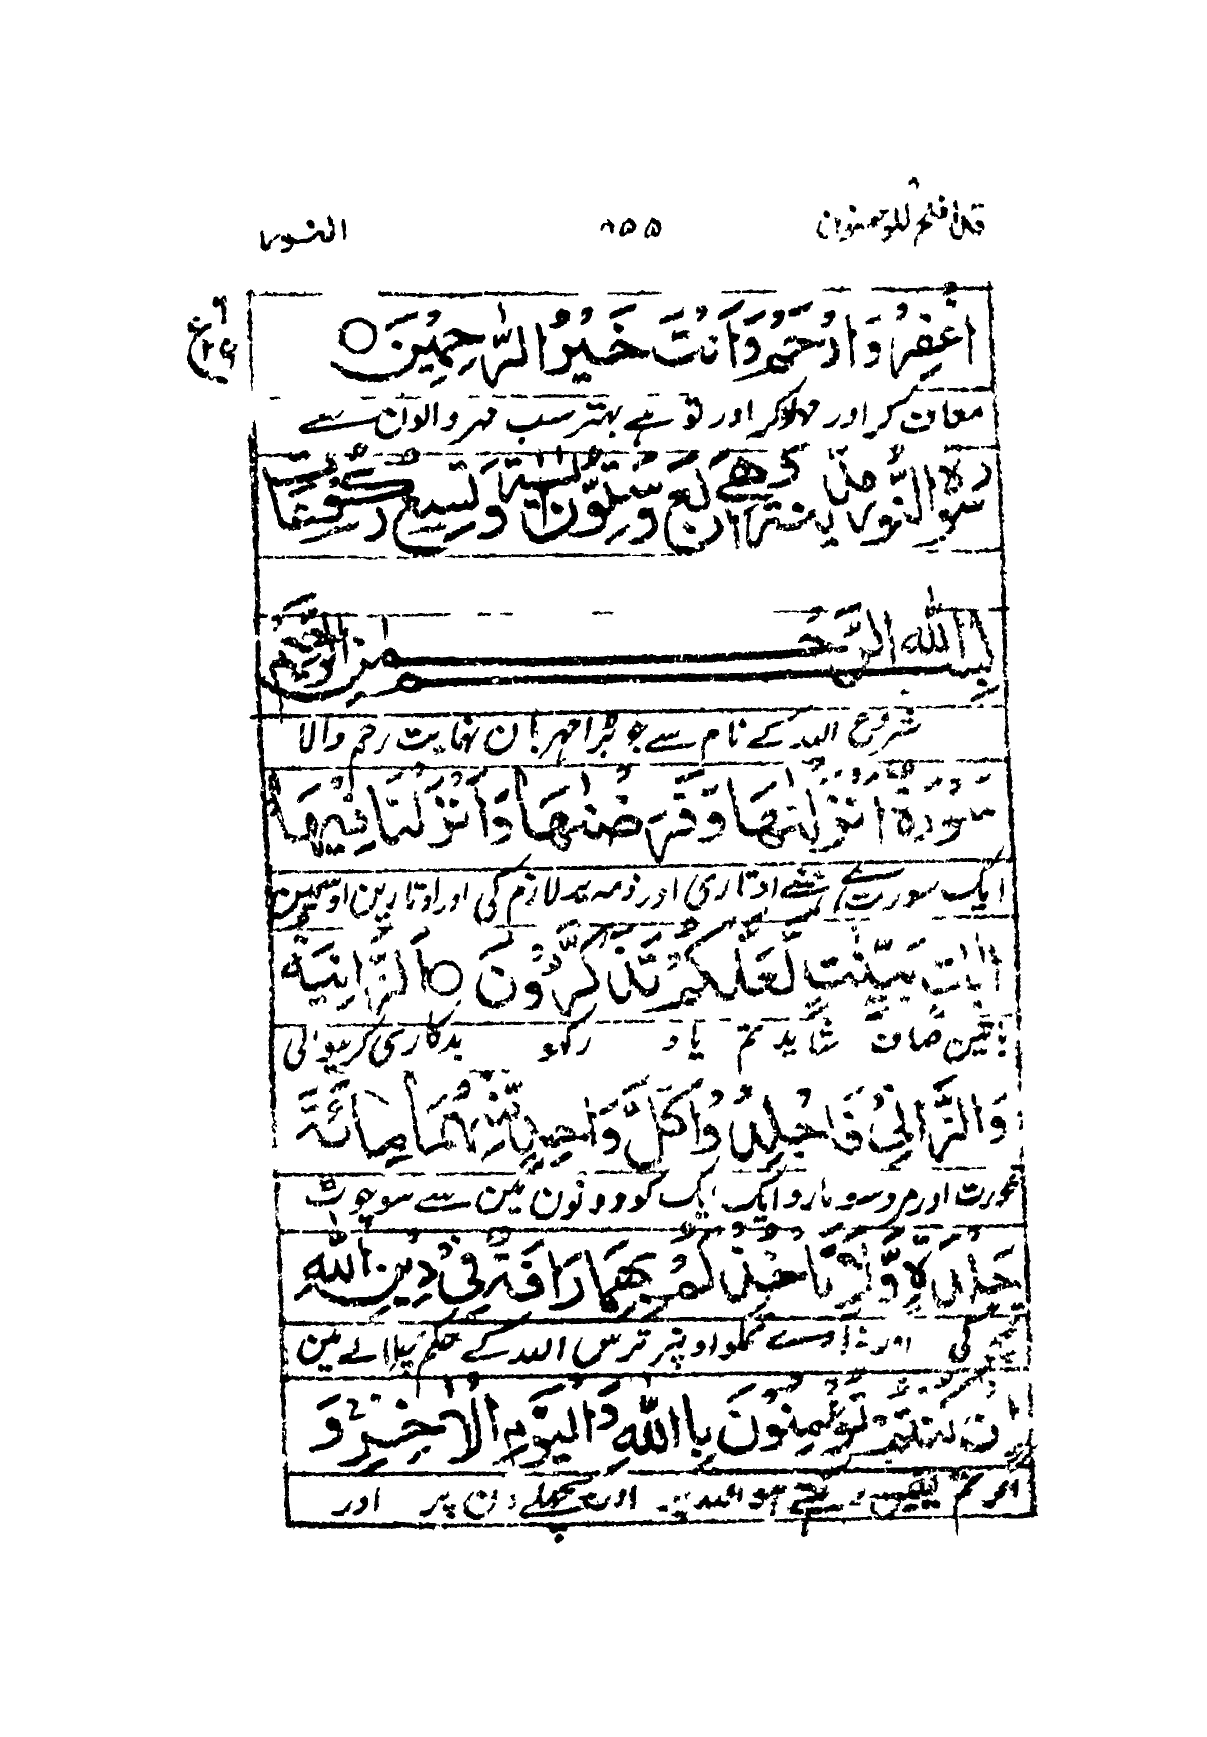 قد افلح المومنون ۸۵۵ النور
اغْفِرْ وَارْحَمْ وَاَنْتَ خَيْرُ الرّٰحِمِيْنَ ○
معاف کر اور مہر کر اور تو ہے بہتر سب مہر والوں سے
سورة النور مدنية وهي اربع وستون اية وتسع ركوعات
بسم الله الرحمن الرحيم
شروع اللہ کے نام سے جو بڑا مہربان نہایت رحم والا
سُوْرَةٌ اَنْزَلْنٰهَا وَفَرَضْنٰهَا وَاَنْزَلْنَا فِيْهَا
ایک سورت ہے ہمنے اوتاری اور ذمہ پہ لازم کی اور اوتارین اوسمین
اٰيٰتٍ بَيِّنٰتٍ لَّعَلَّكُمْ تَذَكَّرُوْنَ ○ اَلزَّانِيَةُ
باتین صاف شاید تم یاد رکھو بدکاری کرنیوالی
وَالزَّانِيْ فَاجْلِدُوْا كُلَّ وَاحِدٍ مِّنْهُمَا مِائَةَ
عورت اور مرد سو مارو ایک ایک کو دونون مین سے سو چوٹ
جَلْدَةٍ وَّلَا تَاْخُذْكُمْ بِهِمَا رَاْفَةٌ فِيْ دِيْنِ اللّٰهِ
کی اور نہ آوے تمکو اونپر ترس اللہ کے حکم چلانے مین
اِنْ كُنْتُمْ تُؤْمِنُوْنَ بِاللّٰهِ وَالْيَوْمِ الْاٰخِرِ وَ
اگر تم یقین رکھتے ہو اللہ پر اور پچھلے دن پر اور